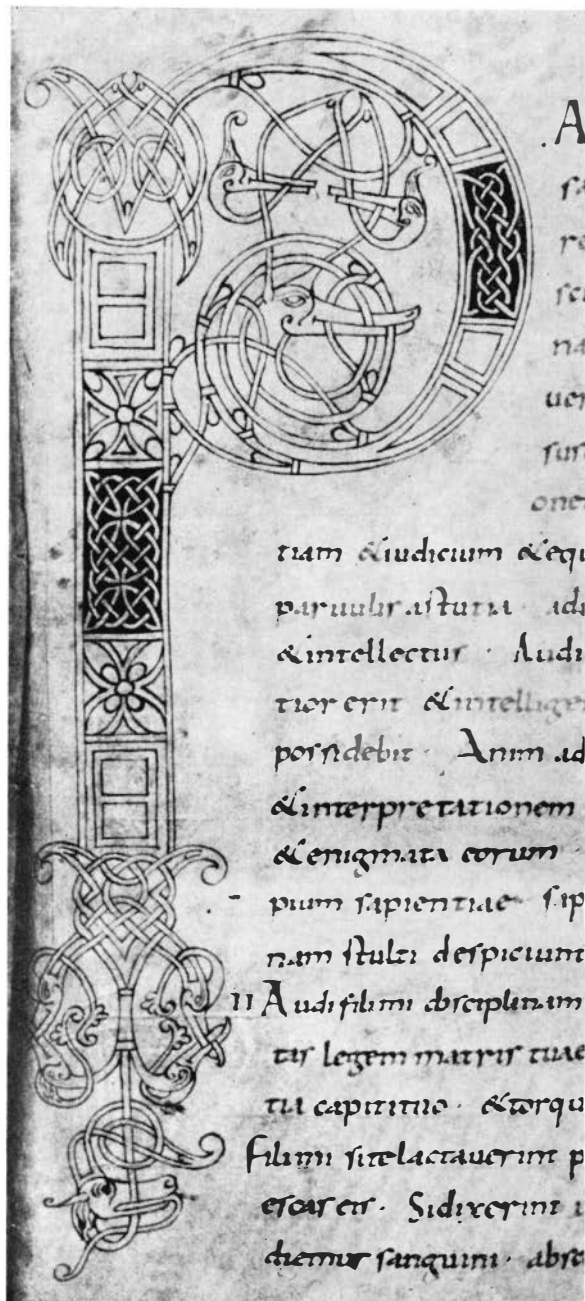 P
A
sa
re
sci
na
uer
sus
onei
tiam &iudicium &equ
paruulis astutia ado
&intellectus · Audi
tior erit &intellige
possidebit · Anim ad
&interpretationem
&enigmata eorum ·
pium sapientiae sap
nam stulti despiciunt
II Audi fili mi disciplinam
tis legem matris tuae
tia capiti tuo · &torqu
Fili mi si te lactauerint p
escas eis · Si dixerint u
diemur sanguini · absc